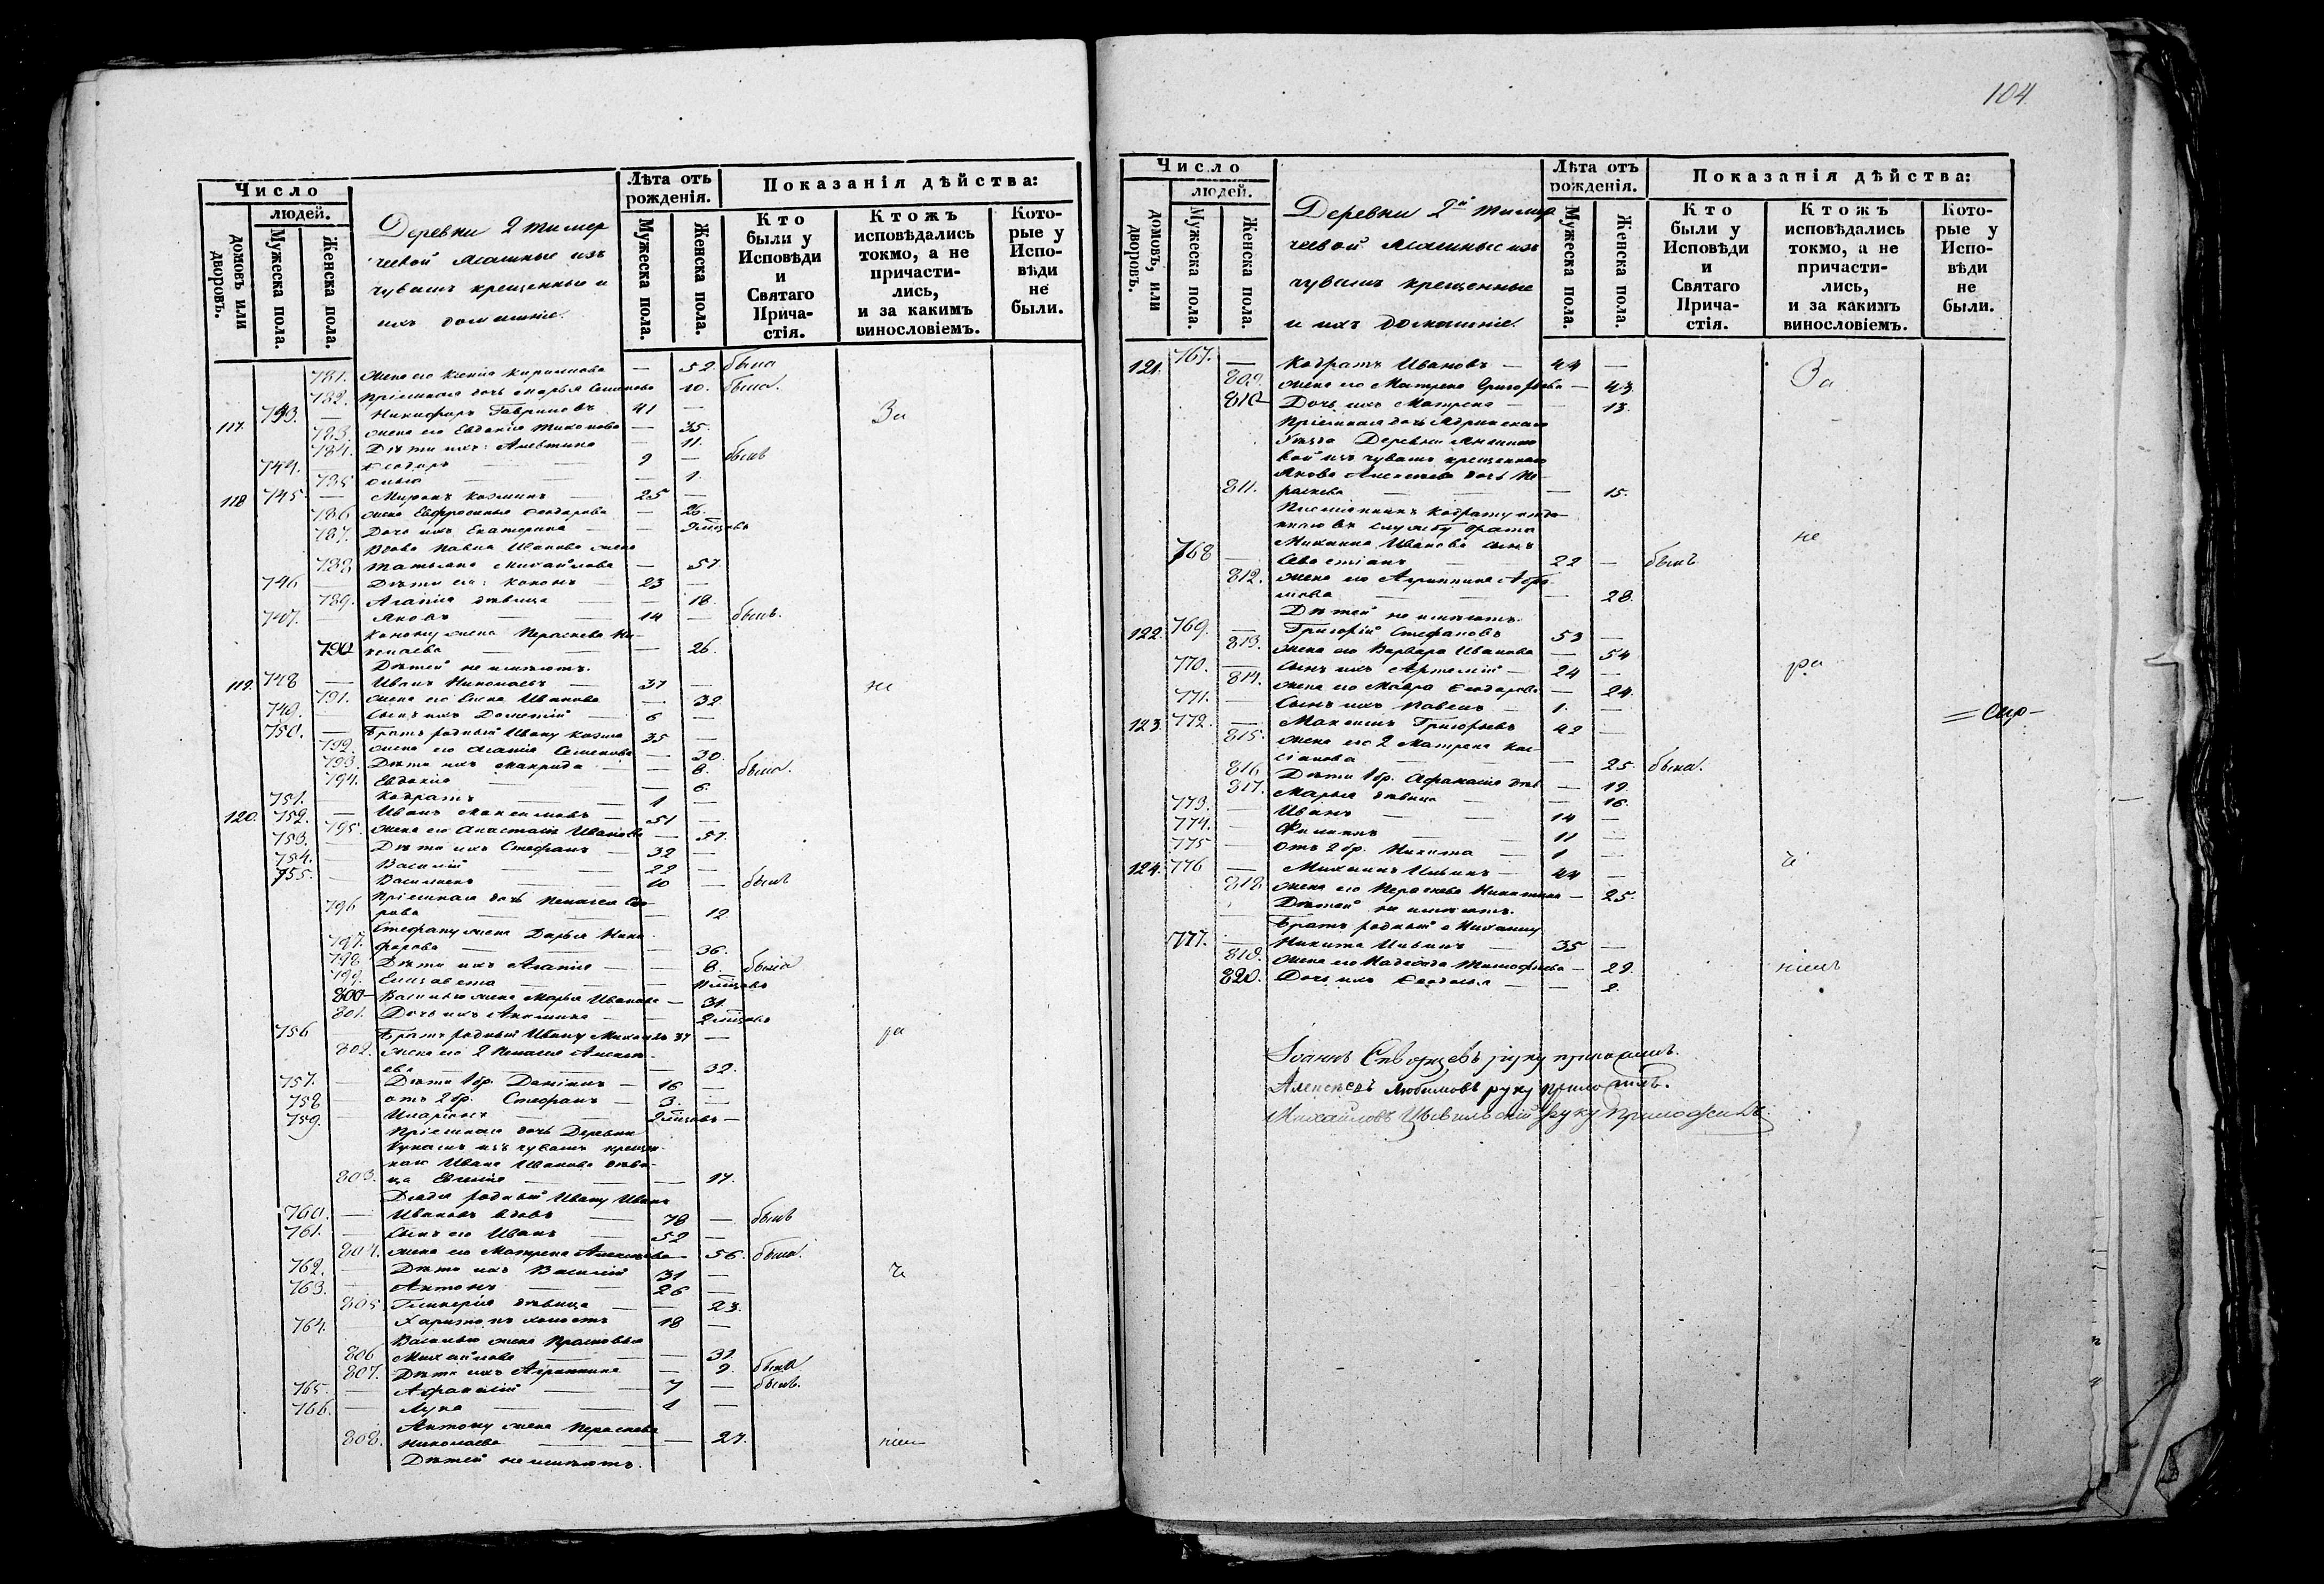 Число
людей.
домовъ или дворовъ.
Мужеска пола.
Женска пола.
Деревни 2 Тимер
чеевой ясашные изъ
чувашъ крещенные и
ихъ домашніе.
Лѣта отъ рожденія.
Мужеска пола.
Женска пола.
Показанія дѣйства:
Кто были у Исповѣди и Святаго Причастія.
Ктожъ исповѣдались токмо, а не причастились, и за какимъ винословіемъ.
Которые у Исповѣди не были.
781. жена его Ксенія Кириллова — 52 была
782. Пріемная дочь Марья Семенова 10. была.
117. 743. — Никифоръ Гавриловъ 41 — За
783. жена его Евдокія Тихонова — 35.
784. Дѣти ихъ: Алевтина — 11.
744. Ѳеодоръ 9 — былъ
785 — 1.
118 745 — Миронъ Козминъ 25 —
786 жена Евфросинья Ѳеодорова — 26.
787. Дочь ихъ Екатерина —
Вдова Павла Иванова жена
788 Татьяна Михайлова — 57
746 Дѣти ея: Кононъ — 23 —
789. Агапія дѣвица — 18.
747. Яковъ 14 — былъ.
Конону жена Пераскева Ни-
790 колаева — 26.
Дѣтей не имѣютъ.
119. 748 — Иванъ Николаевъ — 37 — не
791. жена его Елена Иванова — 32
749. Сынъ ихъ Дометій — 6 —
750. — Братъ родный Ивану Козма 35 —
792. жена его Агапія Семенова — 30.
793. Дѣти ихъ Макрида — 8. была.
794. Евдокія — 6.
751. Кодратъ 1 —
120. 752. — Иванъ Максимовъ — 51 —
795. жена его Анастасія Иванова — 57.
753. Дѣти ихъ Стефанъ — 32 —
754. Василій 22 —
755. 10 — былъ
796 Пріемная дочь Пелагея Ѳео-
рова 12
Стефану жена Дарья Ники-
797. форова — 36.
798 Дѣти ихъ Агапія — 8. была
799. Елизавета
800 — Василью жена Марья Иванова — 31.
801. Дочь ихъ Акилина —
756 Братъ родный Ивану Михаилъ 37 — ра
802. жена его 2 Пелагея Алексѣ-
ева — 32.
757. — Дѣти 1 бр. Даміанъ — 16 —
758 — отъ 2 бр. Стефанъ — 3. —
759. — Иларіонъ —
Пріемная дочь Деревни
чувашъ крещен-
наго Ивана Иванова дѣви-
803. ца Евгенія — 17.
Дядя родный Ивану Иванъ
760. — Ивановъ вдовъ 78 — былъ
761. Сынъ его Иванъ 52 —
804. жена его Матрена Алексѣева — 56. была.
762. Дѣти ихъ Василій 31 — чи
763. Антонъ 26 —
805. Гликерія дѣвица — 23.
764. Харитонъ холостъ 18 —
Василью жена Прасковья
806 Михайлова — 31.
807. Дѣти ихъ Агриппина — 9. была
765. — Афанасій — 7 — былъ.
766. — Лука — 1 —
Антону жена Пераскева
808. Николаева — 27.
Дѣтей не имѣютъ.
104
Число
людей.
домовъ, или дворовъ.
Мужеска пола.
Женска пола.
Деревни 2й Тимер
чеевой ясашные изъ
чувашъ крещенные
и ихъ домашніе.
Лѣта отъ рожденія.
Мужеска пола.
Женска пола.
Показанія дѣйства:
Кто были у Исповѣди и Святаго Причастія.
Ктожъ исповѣдались токмо, а не причастились, и за какимъ винословіемъ.
Которые у Исповѣди не были.
121. 767. — Кодратъ Ивановъ — 44 — За
809. жена его Матрена Григорьева — 43.
810 — Дочь ихъ Матрена — 13.
Пріемная дочь Ядринскаго
уѣзда Деревни
вой изъ чувашъ крещеннаго
Якова Алексѣева дочь Пе-
811. раскева — 15.
Племянникъ Кодрату отда-
ннаго въ службу брата
Михаила Иванова сынъ не
768 Севастіанъ 22 — былъ
812. жена его Агриппина Абра-
мова — 28.
Дѣтей не имѣютъ.
122. 769. — Григорій Стефановъ 53 —
813. жена его Варвара Иванова — 54
770. — Сынъ ихъ Артемій — 24 — ра
814. жена его Мавра Ѳеодорова — 24.
771. — Сынъ ихъ Павелъ — 1. —
123 772. — Максимъ Григорьевъ 42 —
815. жена его 2 Матрена Кас-
сіанова — 25. была.
816 Дѣти 1 бр. Афанасія дѣв. — 19.
817. Марья дѣвица — 16.
773. — Иванъ 14 —
774. — Филиппъ 11 —
775 — отъ 2 бр. Никита — 1 —
124. 776 — Михаилъ Ильинъ — 44 — чі
818 жена его Пераскева Никитина — 25.
Дѣтей не имѣютъ.
Братъ родный Михаилу
777. — Никита Ильинъ — 35 —
819. жена его Надежда Тимофеева — 29.
820. Дочь ихъ Ѳеодосья — 2.
Іоаннъ Скворцевъ руку приложилъ.
Алексѣй Любимовъ руку приложилъ.
Михаиловъ Цывильскій руку приложилъ.